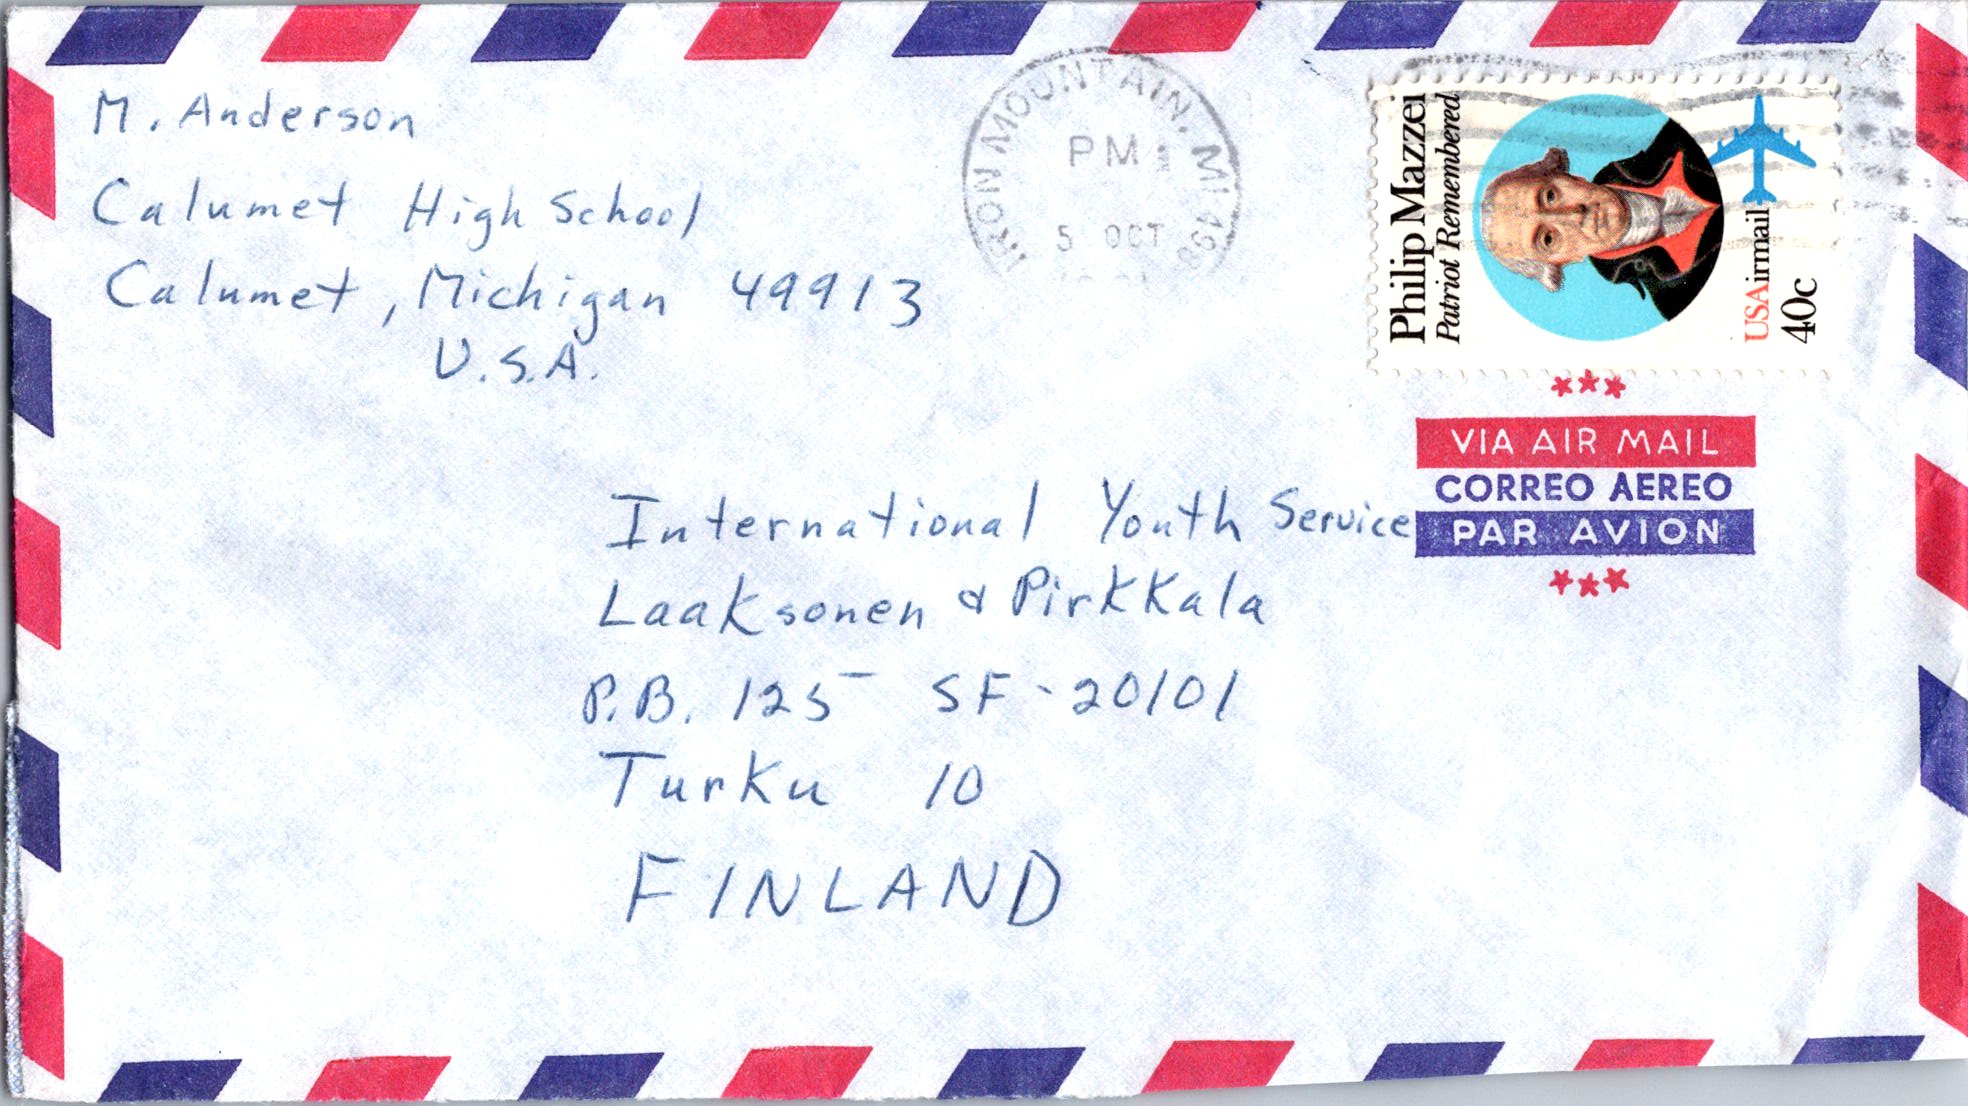 M. Anderson
Calumet High School
Calumet, Michigan 49913
U.S.A.
IRON MOUNTAIN, MI 498
PM
5 OCT
Philip Mazzei
Patriot Remembered
USAirmail
40c
VIA AIR MAIL
CORREO AEREO
PAR AVION
International Youth Service
Laaksonen & Pirkkala
P.B. 125 SF-20101
Turku 10
FINLAND